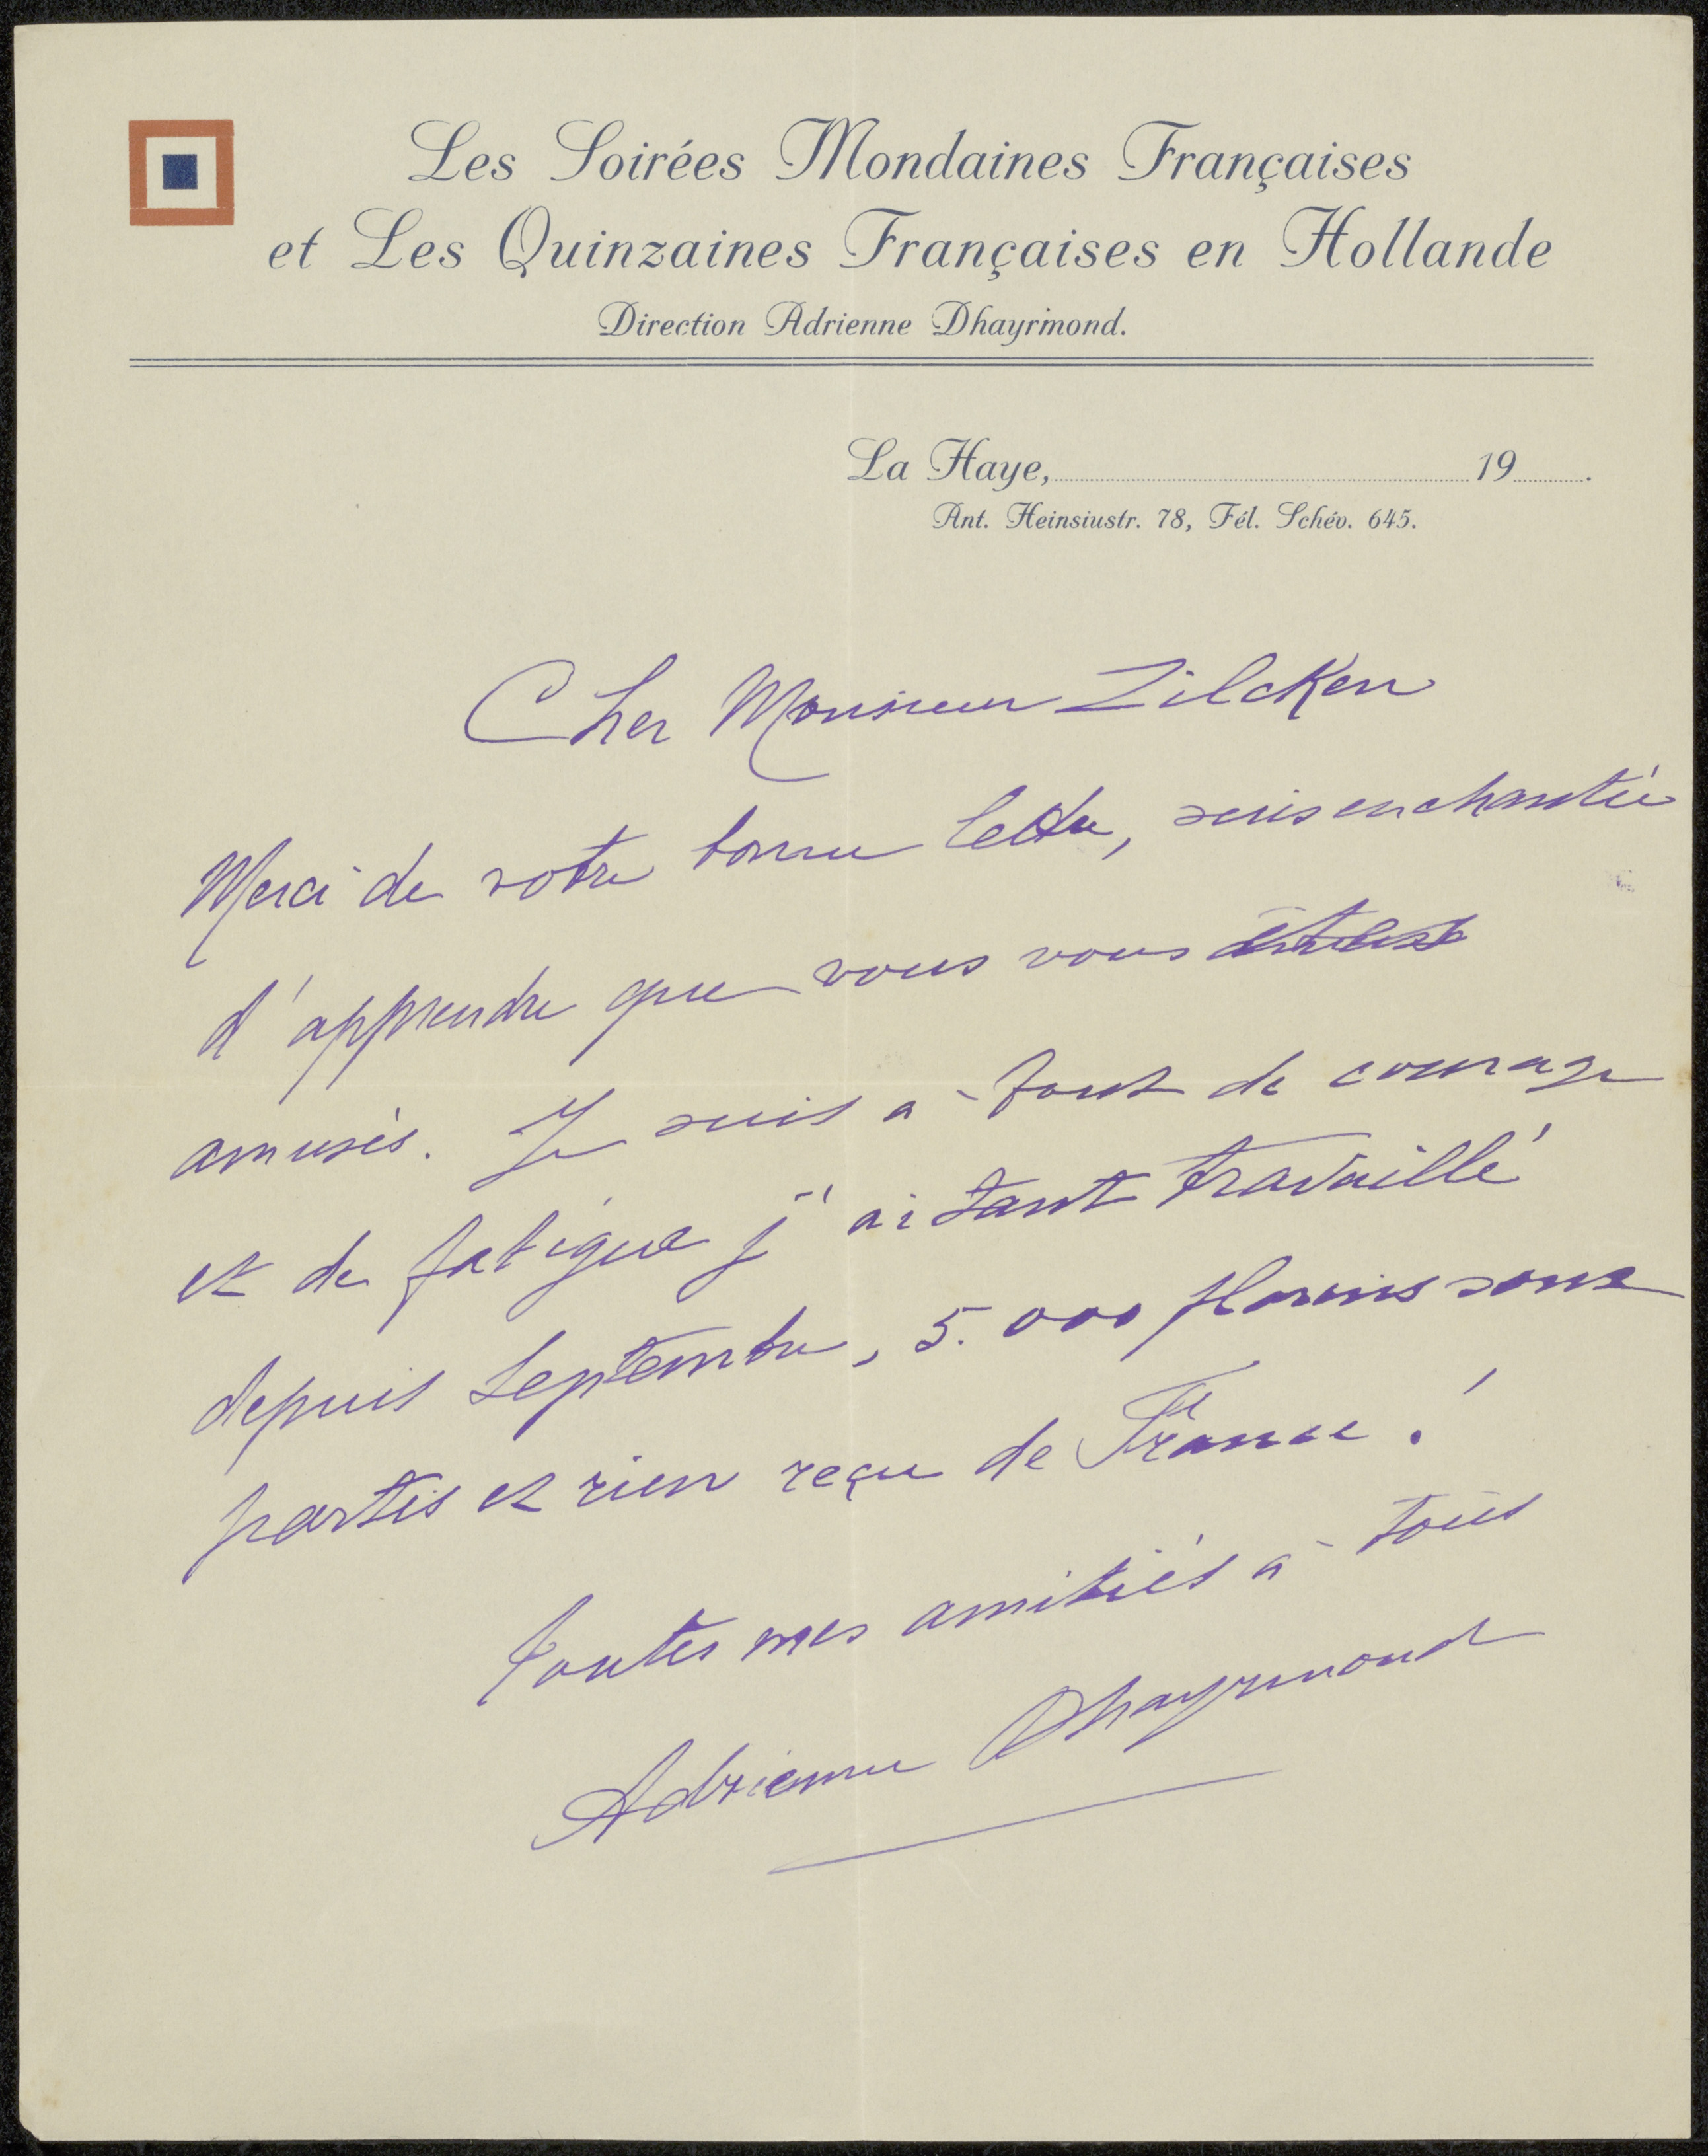 Les Soirées Mondaines Françaises
et Les Quinzaines Françaises en Hollande
Direction Adrienne Dhayrmond.
La Haye, 19 .
Ant. Heinsiustr. 78, Tél. Schév. 645.
Cher Monsieur Zilcken
Merci de votre bonne lettre, suis enchantée
d'apprendre que vous vous êtes
amusés. Je suis à bout de courage
et de fatigue j'ai tant travaillé
depuis Septembre, 5.000 florins sont
partis et rien reçu de France !
Toutes mes amitiés à tous
Adrienne Dhayrmond